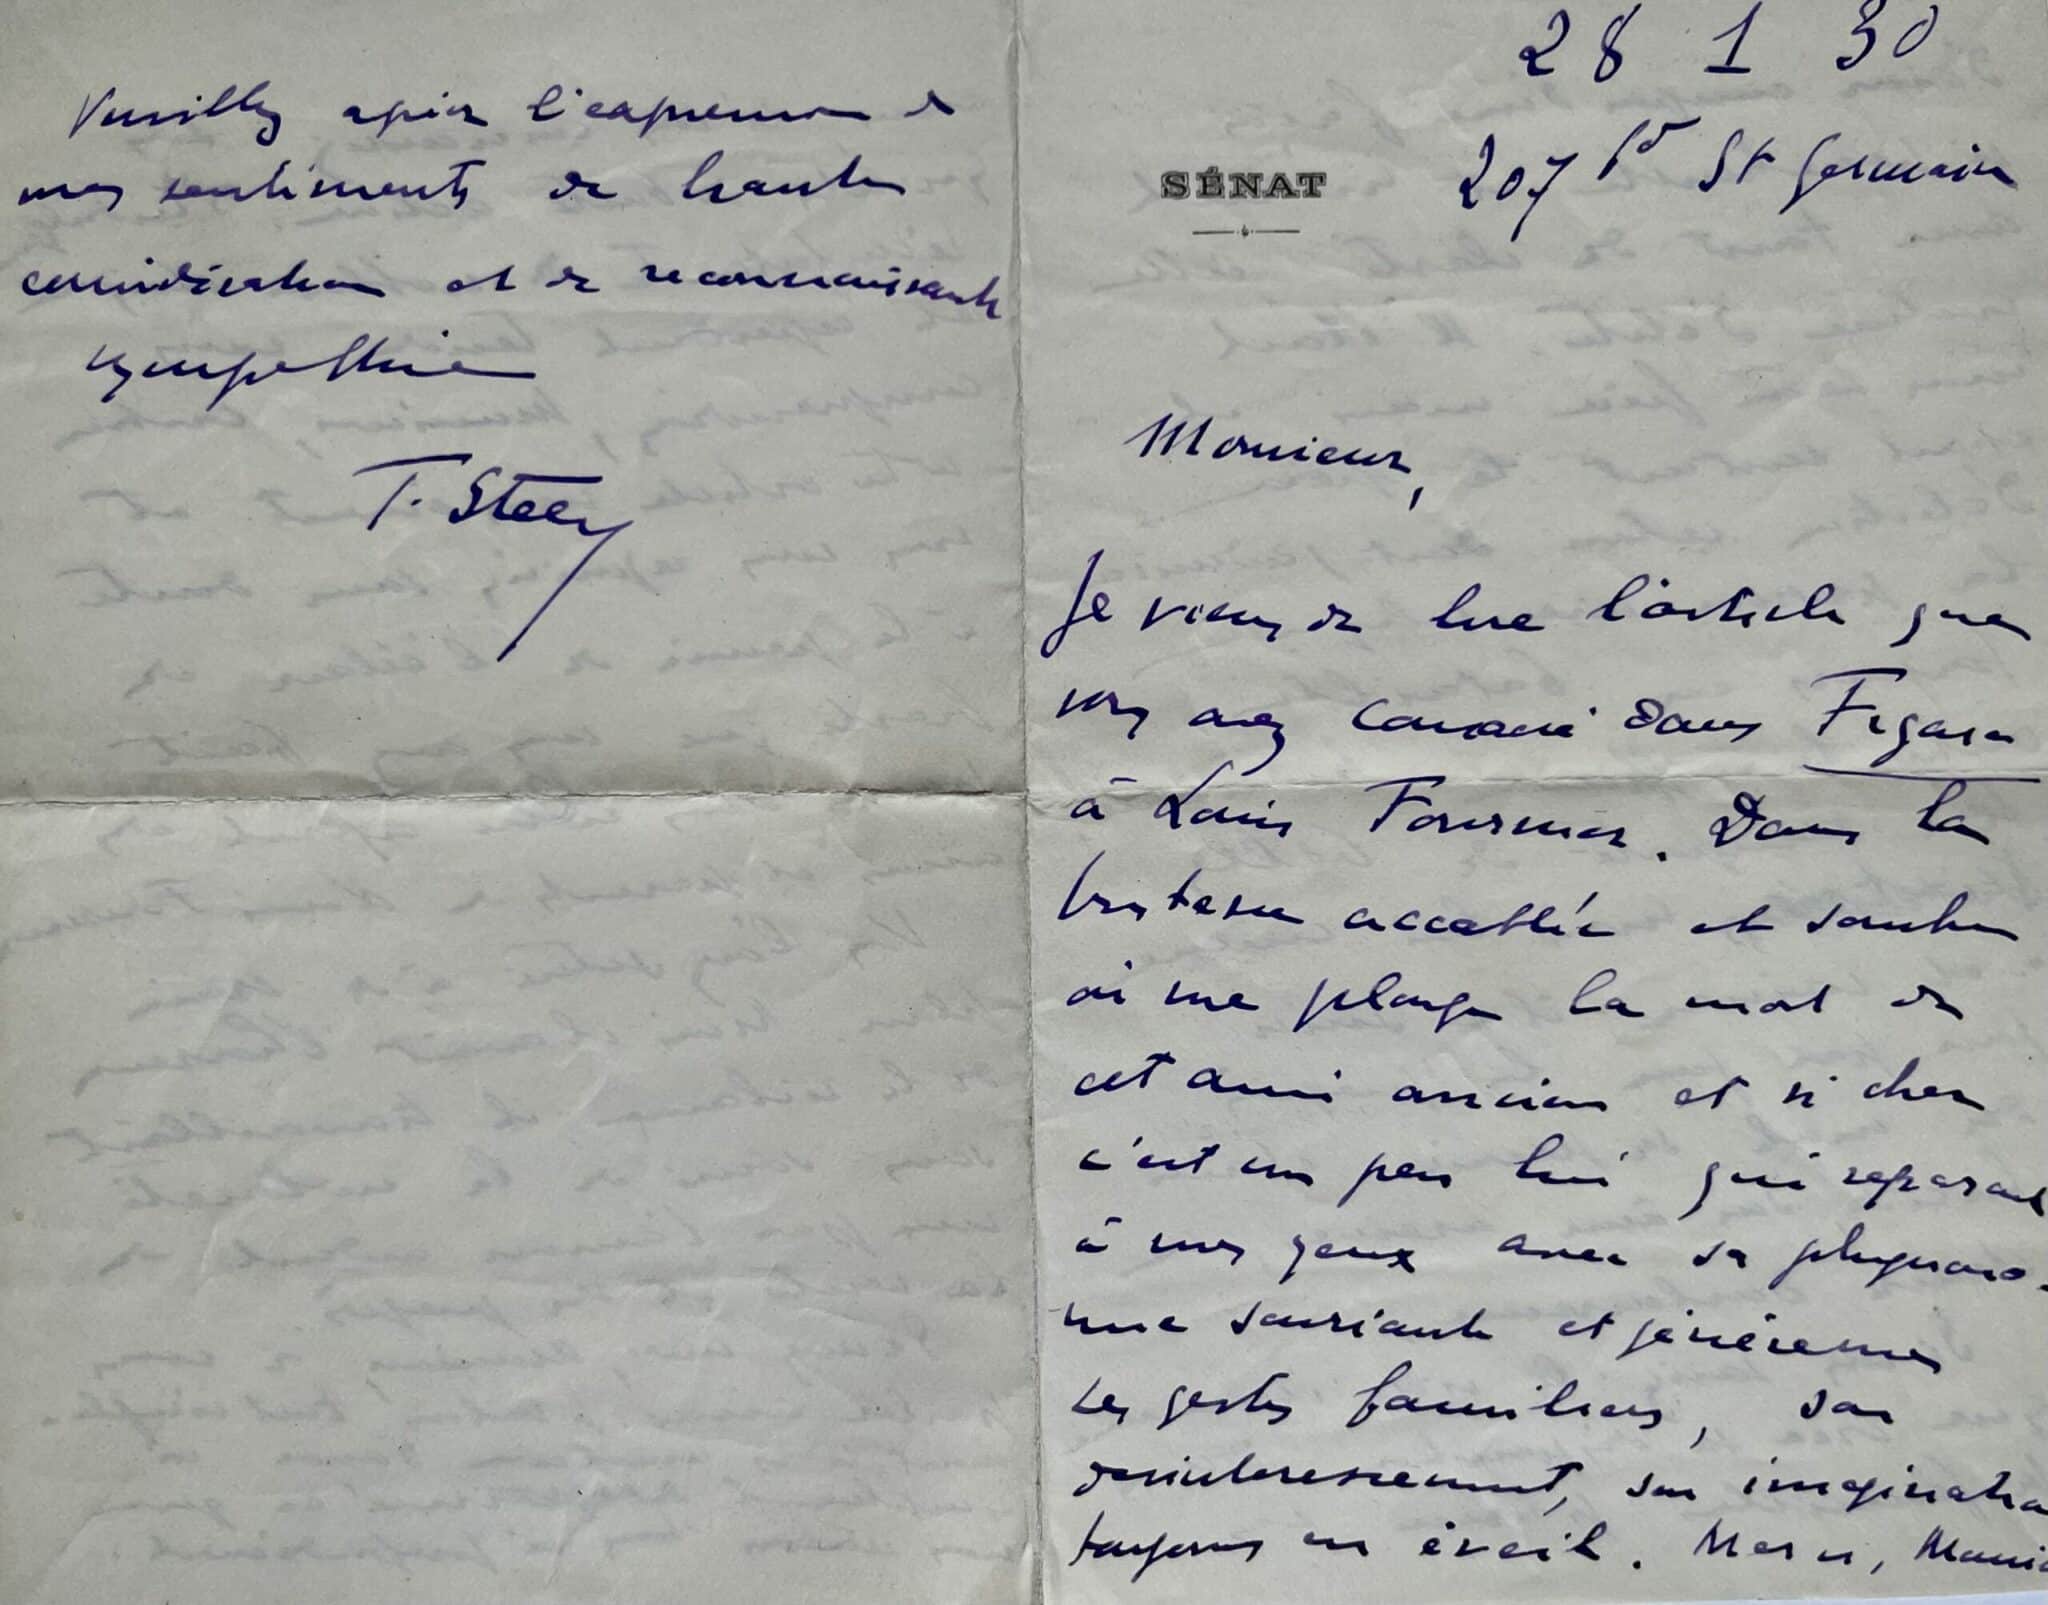 28 1 30
SÉNAT
207 Bd St Germain
Monsieur,
Je viens de lire l'article que
vous avez consacré dans Figaro
à Louis Forest. Dans la
tristesse accablée et sombre
où me plonge la mort de
cet ami ancien et si cher
c'est un peu lui qui reparaît
à mes yeux avec sa physiono-
mie souriante et généreuse
ses gestes familiers, son
désintéressement, son imagination
toujours en éveil. Merci, Monsieur
Veuillez agréer l'expression de
mes sentiments de haute
considération et de reconnaissante
sympathie
T. Steeg